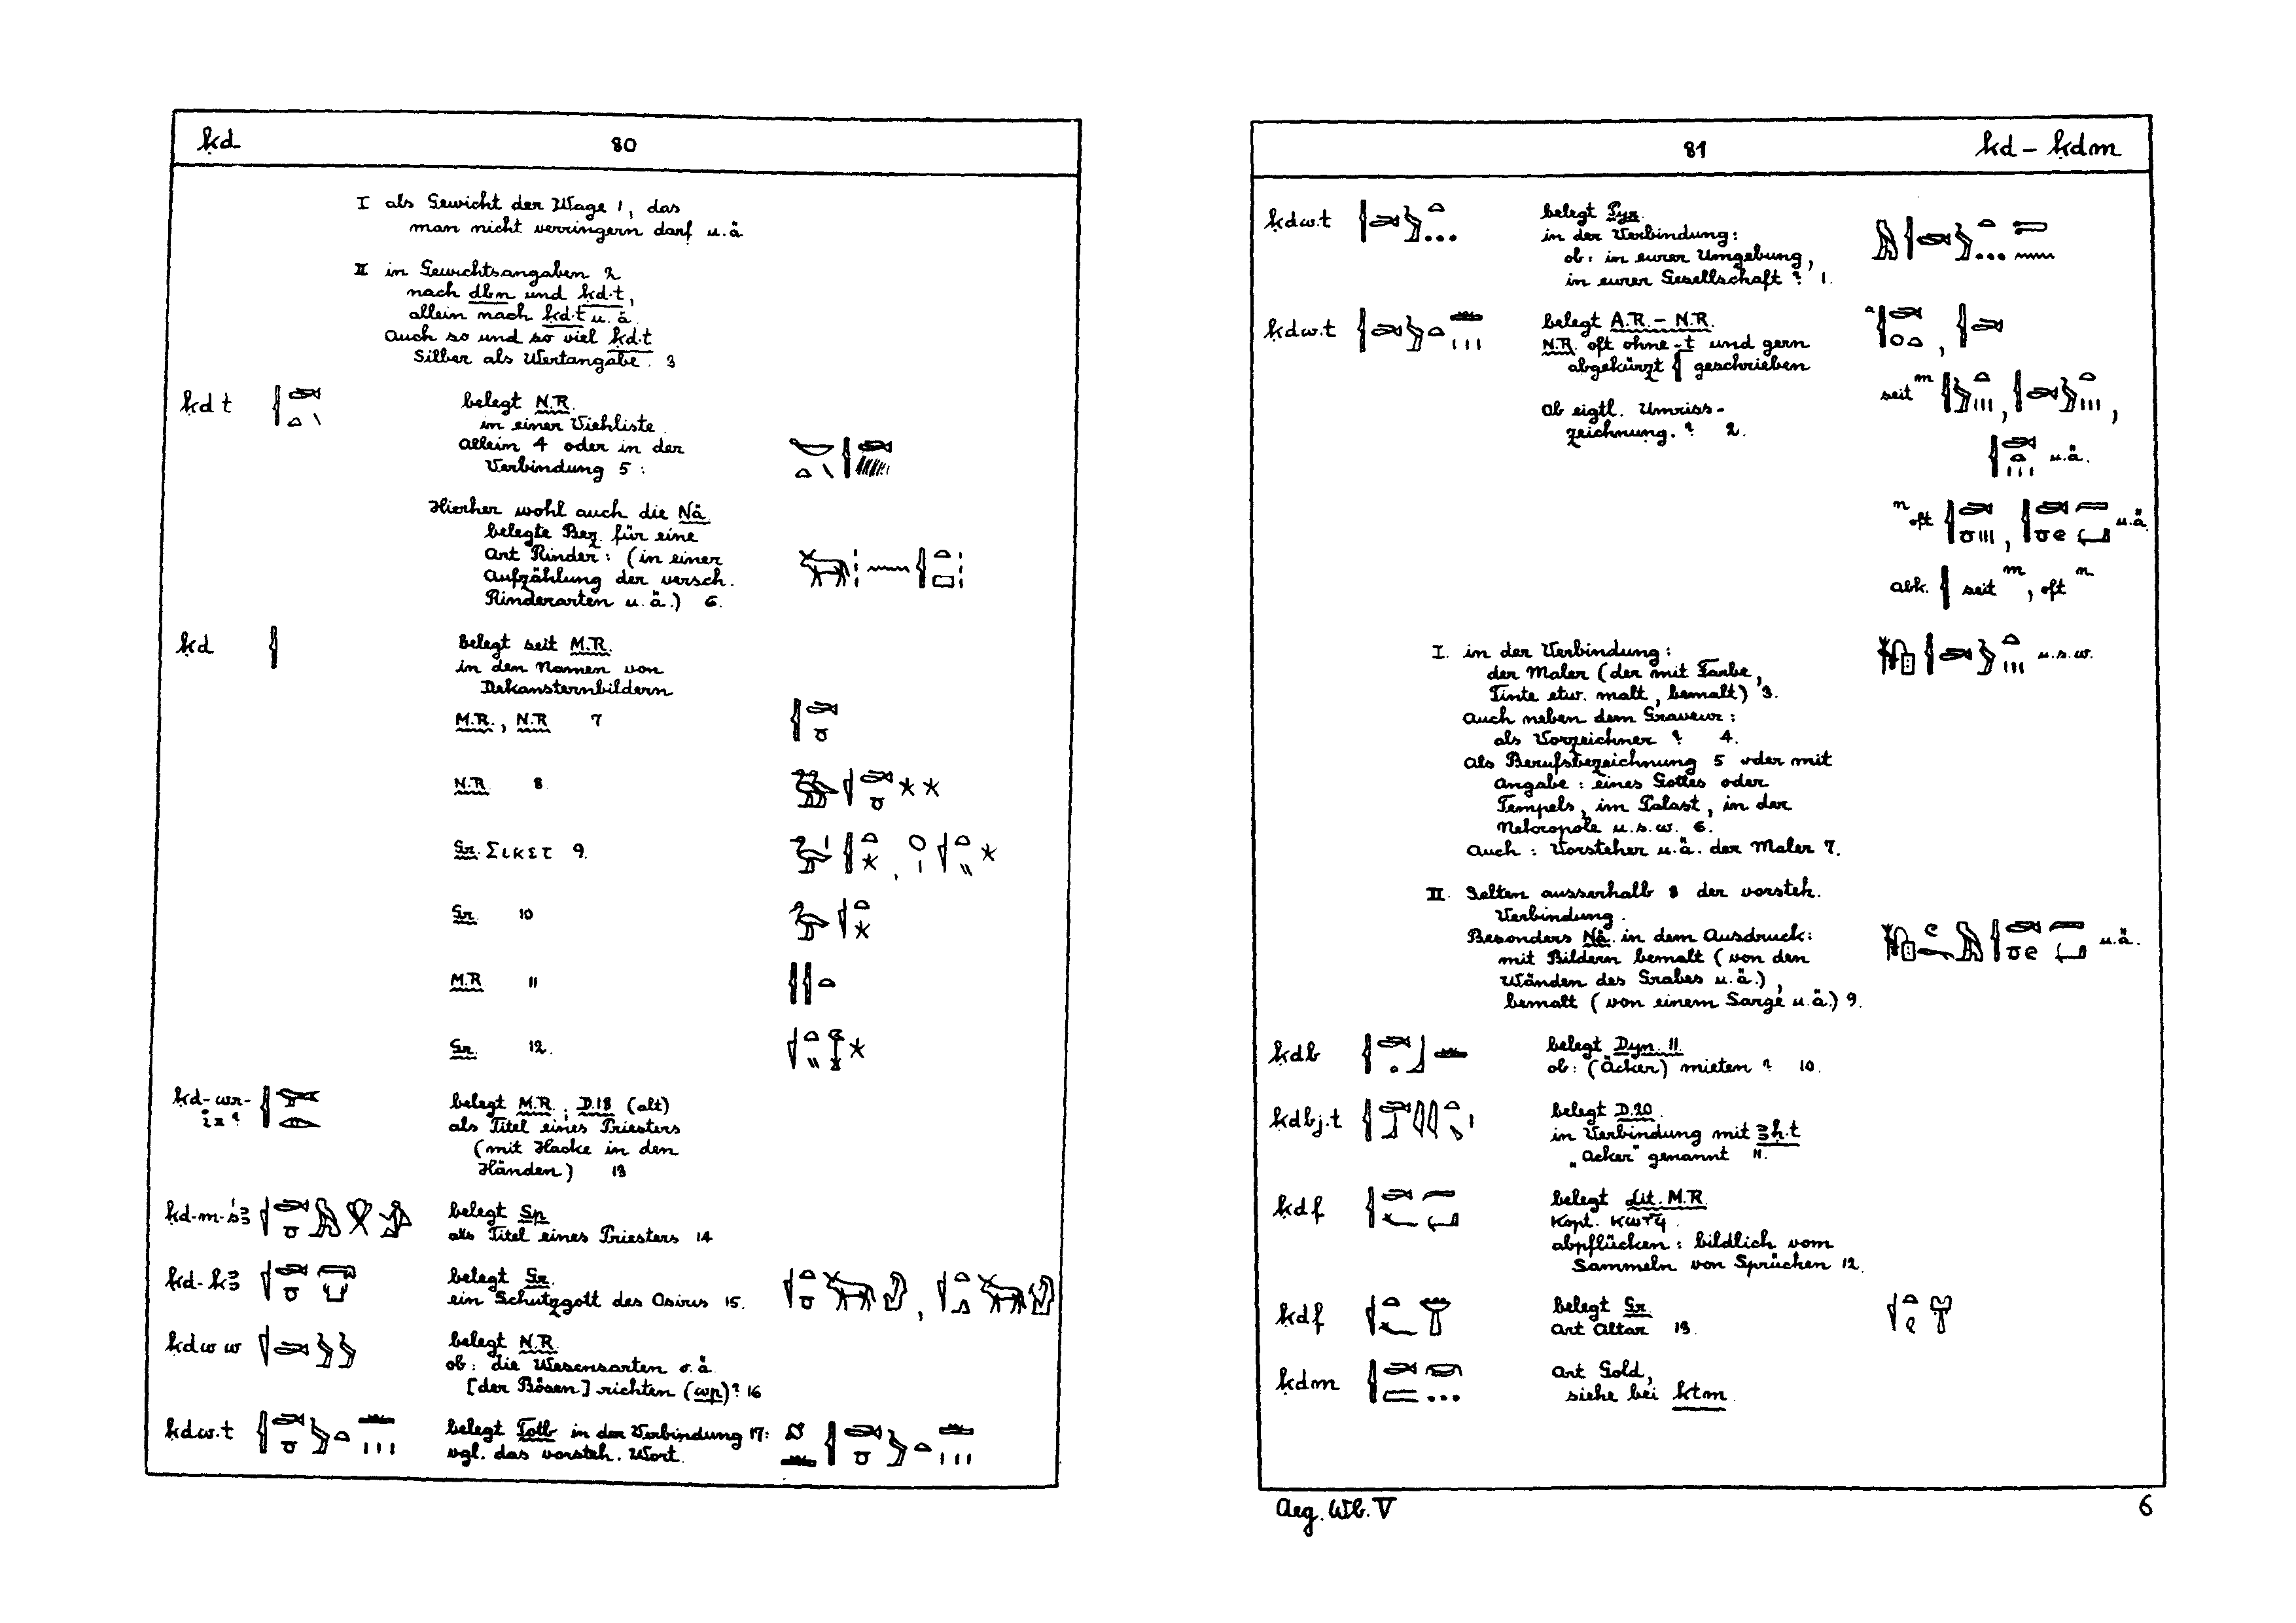 ḳd 80
I als Gewicht der Wage 1, das
man nicht verringern darf u.ä
II in Gewichtsangaben 2
nach dbn und ḳd.t,
allein nach ḳd.t u. ä.
Auch so und so viel ḳd.t
Silber als Wertangabe. 3
ḳd t belegt N.R.
in einer Viehliste
allein 4 oder in der
Verbindung 5 :
Hierher wohl auch die Nä
belegte Bez. für eine
Art Rinder: (in einer
Aufzählung der versch.
Rinderarten u.ä.) 6.
ḳd belegt seit M.R.
in den Namen von
Dekansternbildern
M.R., N.R 7
N.R. 8.
Gr. Σικετ 9.
Gr. 10
M.R 11
Gr. 12.
ḳd-wr-
ir? belegt M.R., D.18 (alt)
als Titel eines Priesters
(mit Hacke in den
Händen) 13
ḳd-m-sꜣ belegt Sp
als Titel eines Priesters 14
ḳd-kꜣ belegt Gr.
ein Schutzgott des Osiris 15.
ḳdw w belegt N.R.
ob: die Wesensarten o.ä.
[der Bösen] richten (wp)? 16
ḳdw.t belegt Totb in der Verbindung 17:
vgl. das vorsteh. Wort.
81 ḳd – ḳdm
ḳdw.t belegt Pyr.
in der Verbindung:
ob: in eurer Umgebung,
in eurer Gesellschaft? 1.
ḳdw.t belegt A.R. – N.R.
N.R. oft ohne -t und gern
abgekürzt geschrieben
seit m
Ob eigtl. Umriss-
zeichnung.? 2.
u.ä.
n oft u.ä.
abk. seit m, oft n
I. in der Verbindung: u.s.w.
der Maler (der mit Farbe,
Tinte etw. malt, bemalt) 3.
Auch neben dem Graveur:
als Vorzeichner? 4.
Als Berufsbezeichnung 5 oder mit
Angabe: eines Gottes oder
Tempels, im Palast, in der
Nekropole u.s.w. 6.
Auch: Vorsteher u.ä. der Maler 7.
II. Selten ausserhalb 8 der vorsteh.
Verbindung.
Besonders Nä. in dem Ausdruck: u.ä.
mit Bildern bemalt (von den
Wänden des Grabes u.ä.),
bemalt (von einem Sarge u.ä.) 9.
ḳdb belegt Dyn. 11.
ob: (Äcker) mieten? 10.
ḳdbj.t belegt D.20.
in Verbindung mit ꜣḥ.t
„Acker" genannt 11.
ḳdf belegt Lit. M.R.
Kopt. ⲕⲱⲧϥ.
abpflücken: bildlich vom
Sammeln von Sprüchen 12.
ḳdf belegt Gr.
Art Altar 13.
ḳdm Art Gold,
siehe bei ktm.
Aeg. Wb. V 6